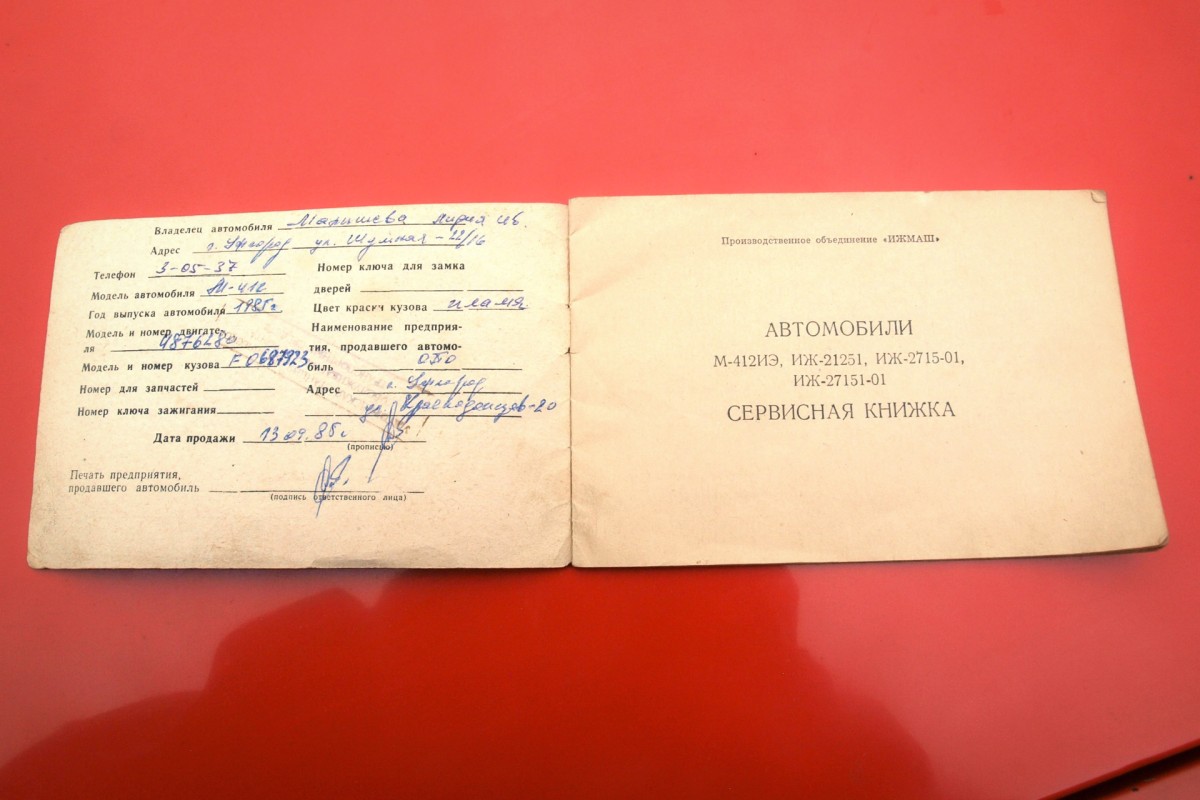 Владелец автомобиля
Адрес г. Ужгород ул. Шумная - 22/16
Телефон 3-05-37
Модель автомобиля М-412
Год выпуска автомобиля 1985г
Модель и номер двигате-
ля 4876280
Модель и номер кузова F 0687923
Номер для запчастей
Номер ключа зажигания
Номер ключа для замка
дверей
Цвет краски кузова пламя
Наименование предприя-
тия, продавшего автомо-
биль ОТО
Адрес г. Ужгород
ул. Краснодонцев-20
Дата продажи 13 09. 85г
(прописью)
Печать предприятия,
продавшего автомобиль
(подпись ответственного лица)
Производственное объединение «ИЖМАШ»
АВТОМОБИЛИ
М-412ИЭ, ИЖ-21251, ИЖ-2715-01,
ИЖ-27151-01
СЕРВИСНАЯ КНИЖКА